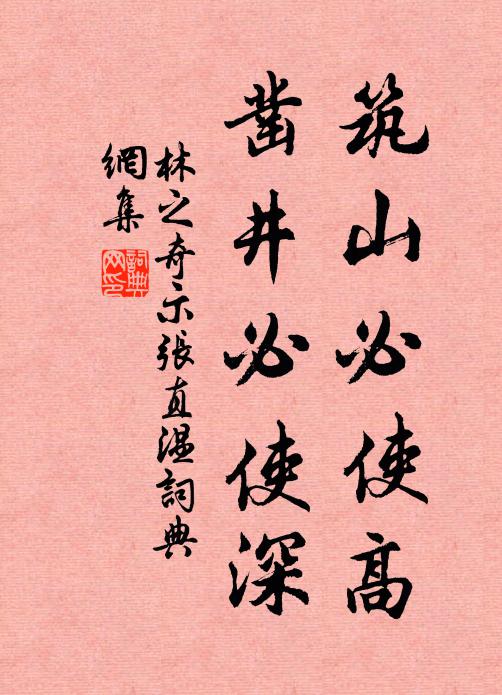 筑山必使高
凿井必使深
林之奇示張直温詞典
網集
詞典
网印